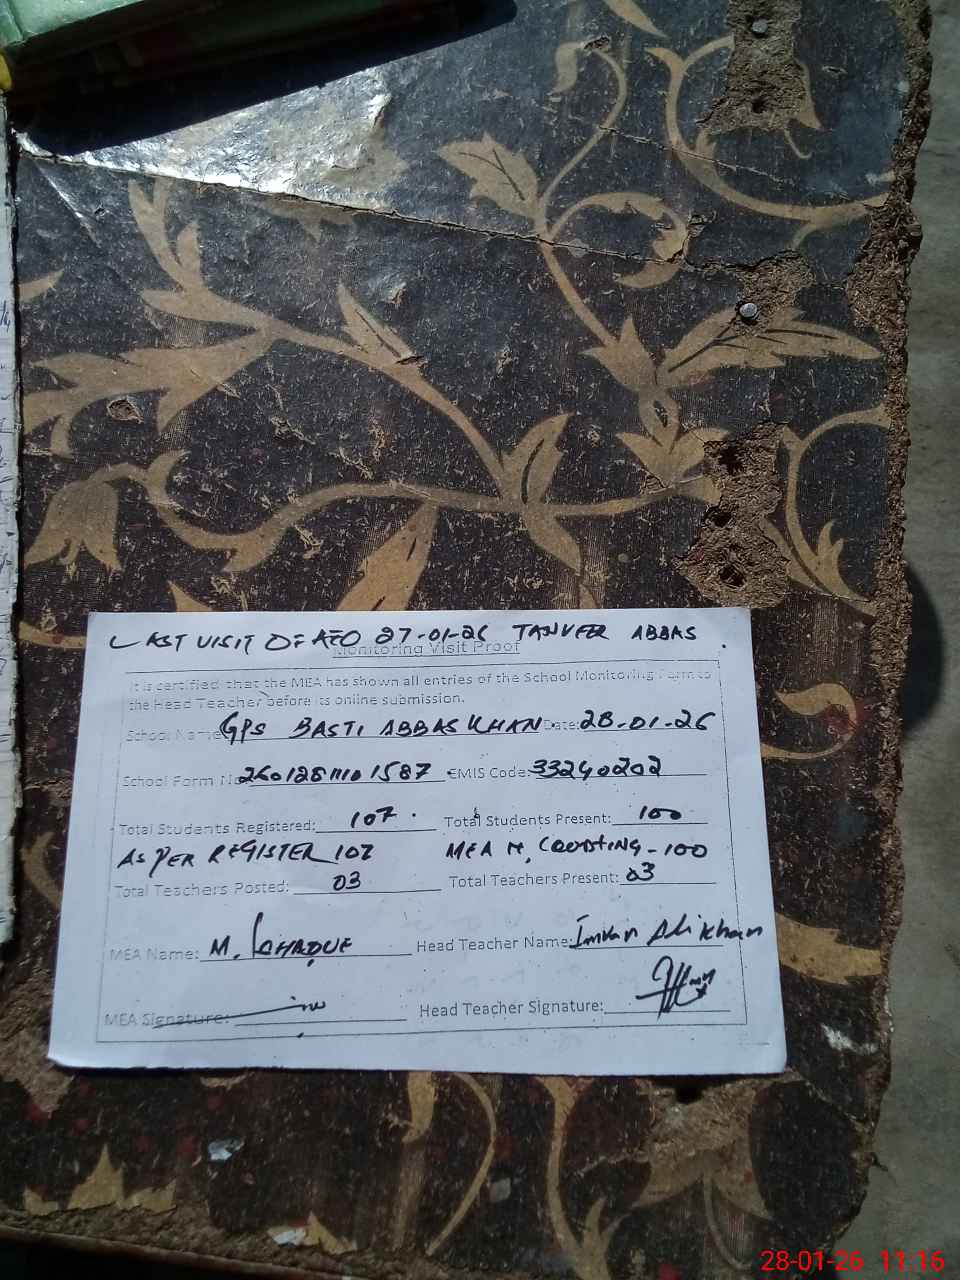 LAST VISIT OF AEO 27-01-26 TANVEER ABBAS
Monitoring Visit Proof
It is certified that the MEA has shown all entries of the School Monitoring Form to
the Head Teacher before its online submission.
School Name GPS BASTI ABBAS KHAN Date: 28-01-26
School Form No 26012811101587 EMIS Code: 33240202
Total Students Registered: 107 Total Students Present: 100
AS PER REGISTER 107 MEA H, COUNTING - 100
Total Teachers Posted: 03 Total Teachers Present: 03
MEA Name: M. ISHAQUE Head Teacher Name: Imran Ali Khan
MEA Signature: Head Teacher Signature:
28-01-26 11:16